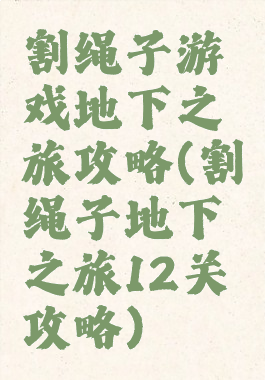 割绳子游
戏地下之
旅攻略(割
绳子地下
之旅12关
攻略)